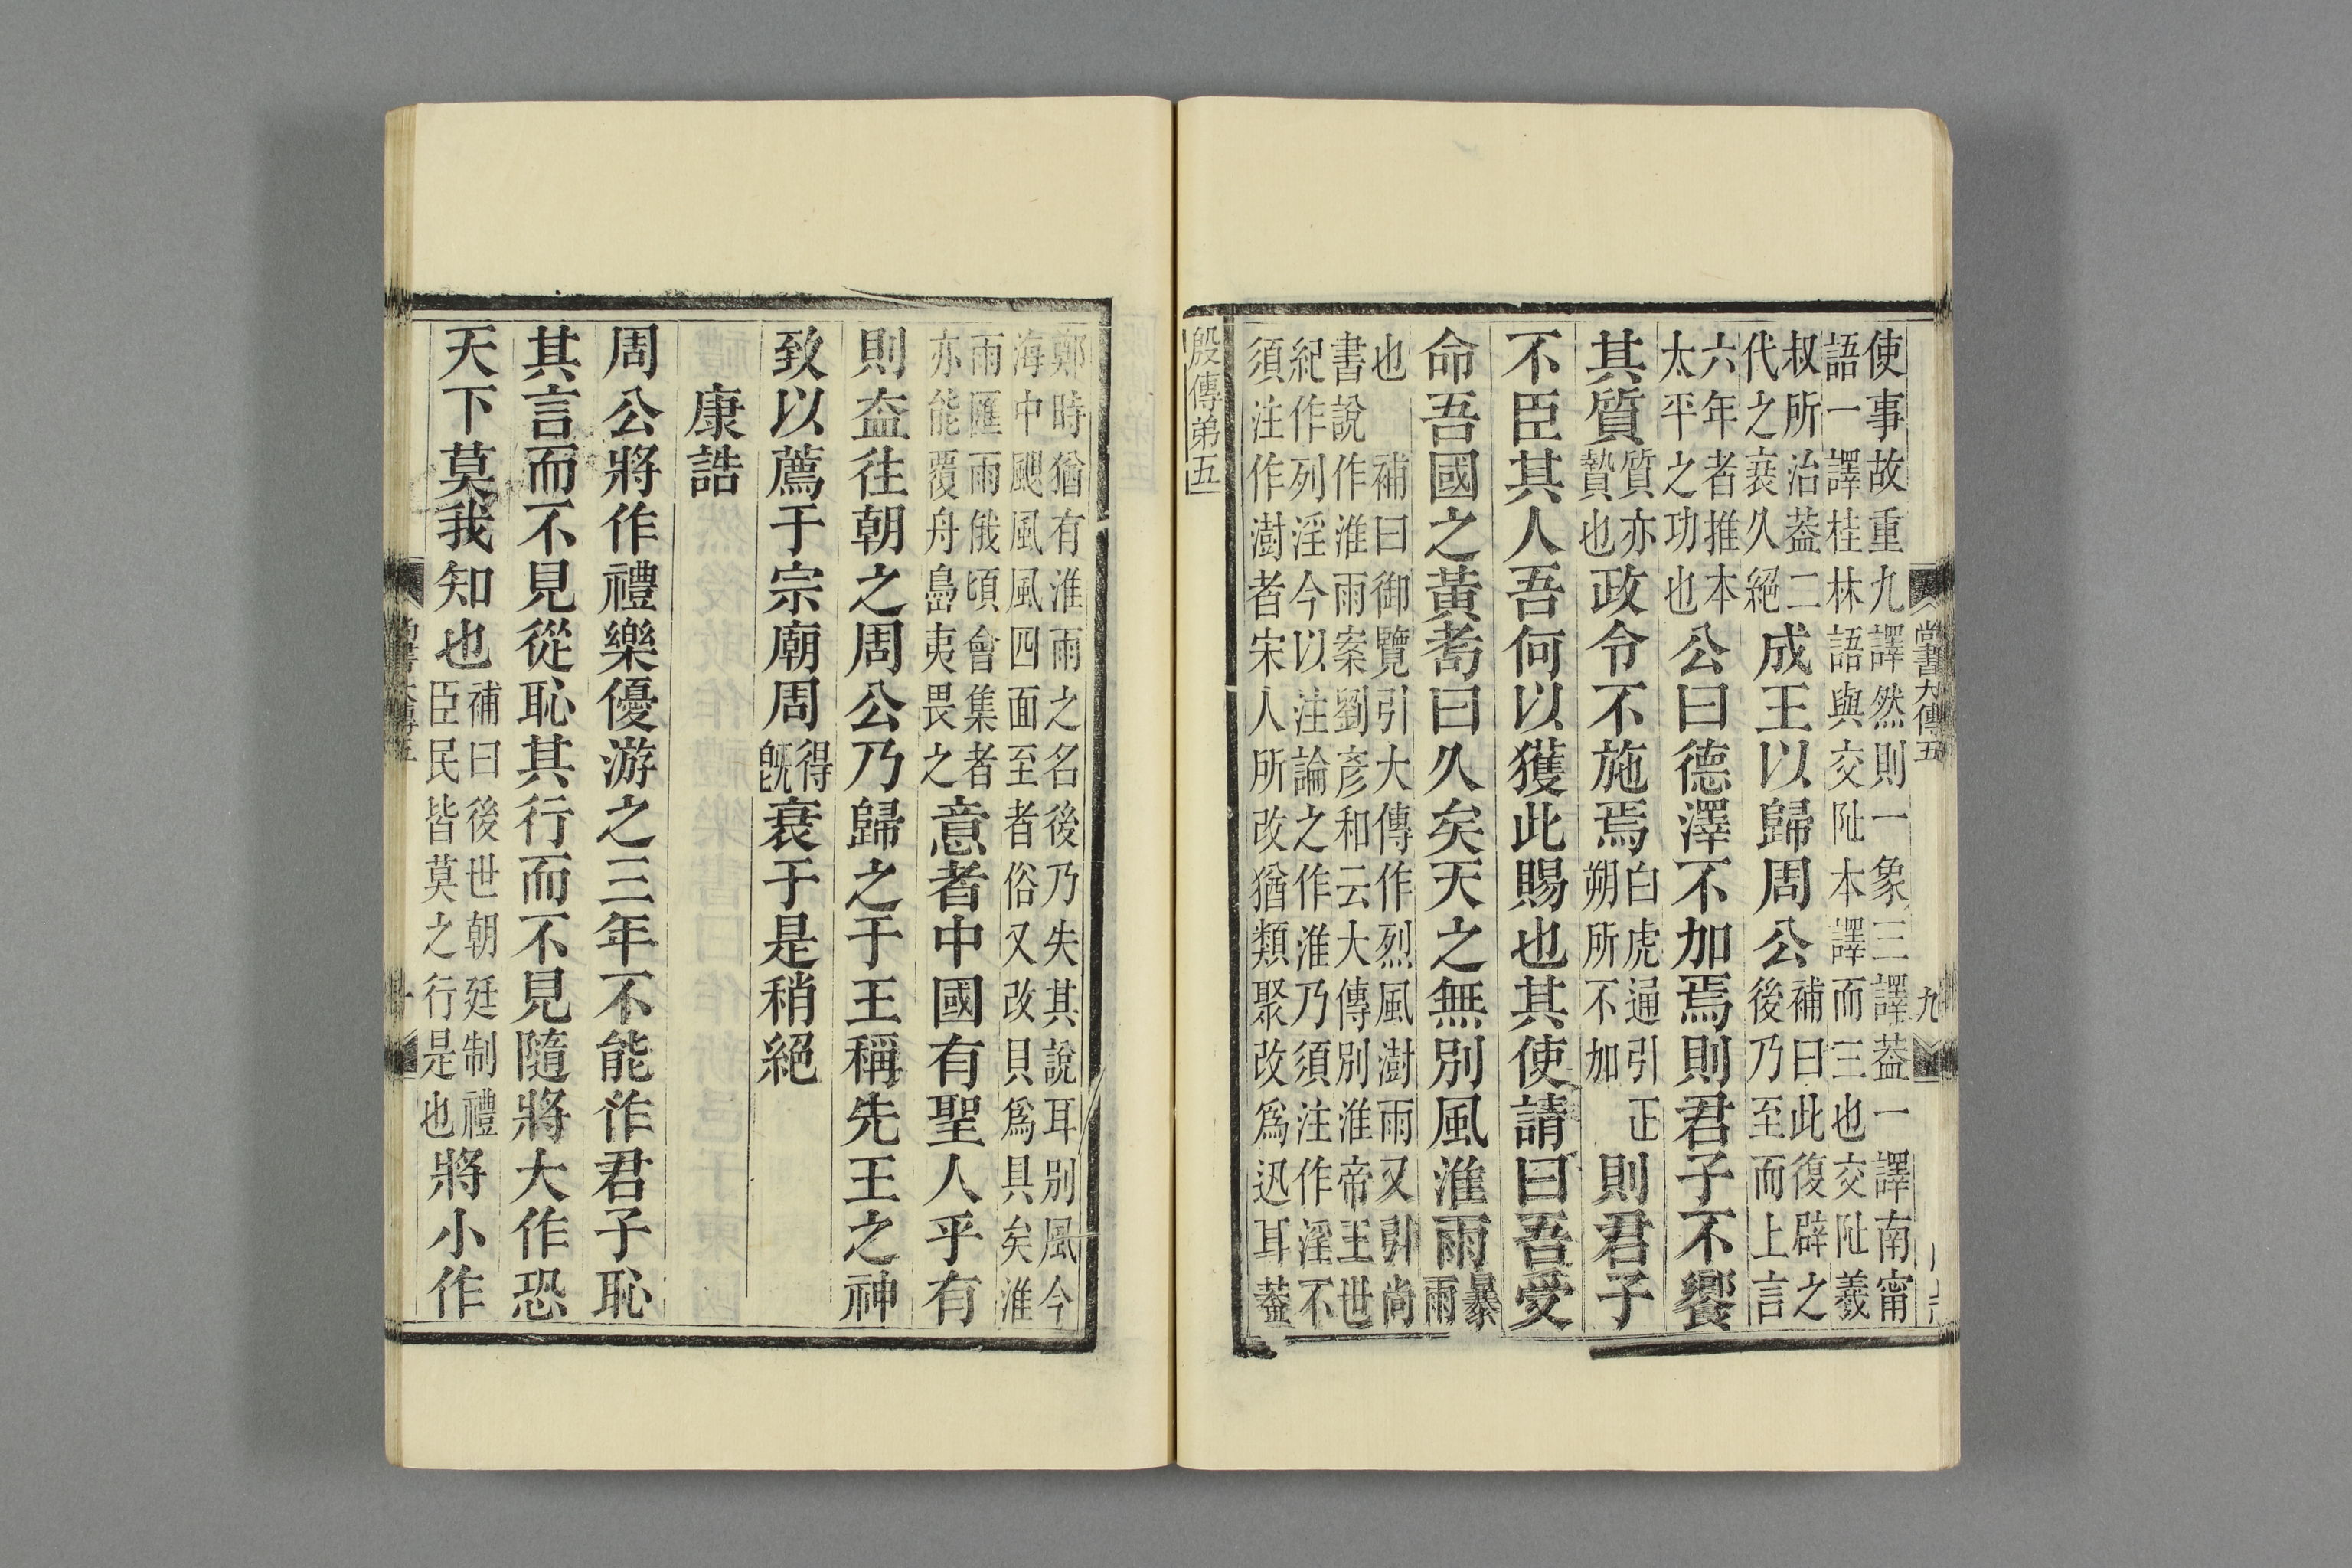 尚書大傳五 九
使事故重九譯然則一象三譯葢一譯南甯
語一譯桂林語與交阯本譯而三也交阯羲
叔所治葢二代之衰久絕成王以歸周公補曰此復辟之後乃至而上言
六年者推本太平之功也公曰德澤不加焉則君子不饗
其質質亦贄也政令不施焉白虎通引正朔所不加則君子
不臣其人吾何以獲此賜也其使請曰吾受
命吾國之黃耇曰久矣天之無別風淮雨暴雨
也 補曰御覽引大傳作烈風澍雨又引尚
書說作淮雨案劉彥和云大傳別淮帝王世
紀作列淫今以注論之作淮乃須注作淫不
須注作澍者宋人所改猶類聚改爲迅耳葢
殷傳弟五
鄭時猶有淮雨之名後乃失其說耳別風今
海中颶風風四面至者俗又改貝爲具矣淮
雨匯雨俄頃會集者亦能覆舟島夷畏之意者中國有聖人乎有
則盍往朝之周公乃歸之于王稱先王之神
致以薦于宗廟周得旣衰于是稍絕
康誥
周公將作禮樂優游之三年不能作君子恥
其言而不見從恥其行而不見隨將大作恐
天下莫我知也補曰後世朝廷制禮臣民皆莫之行是也將小作